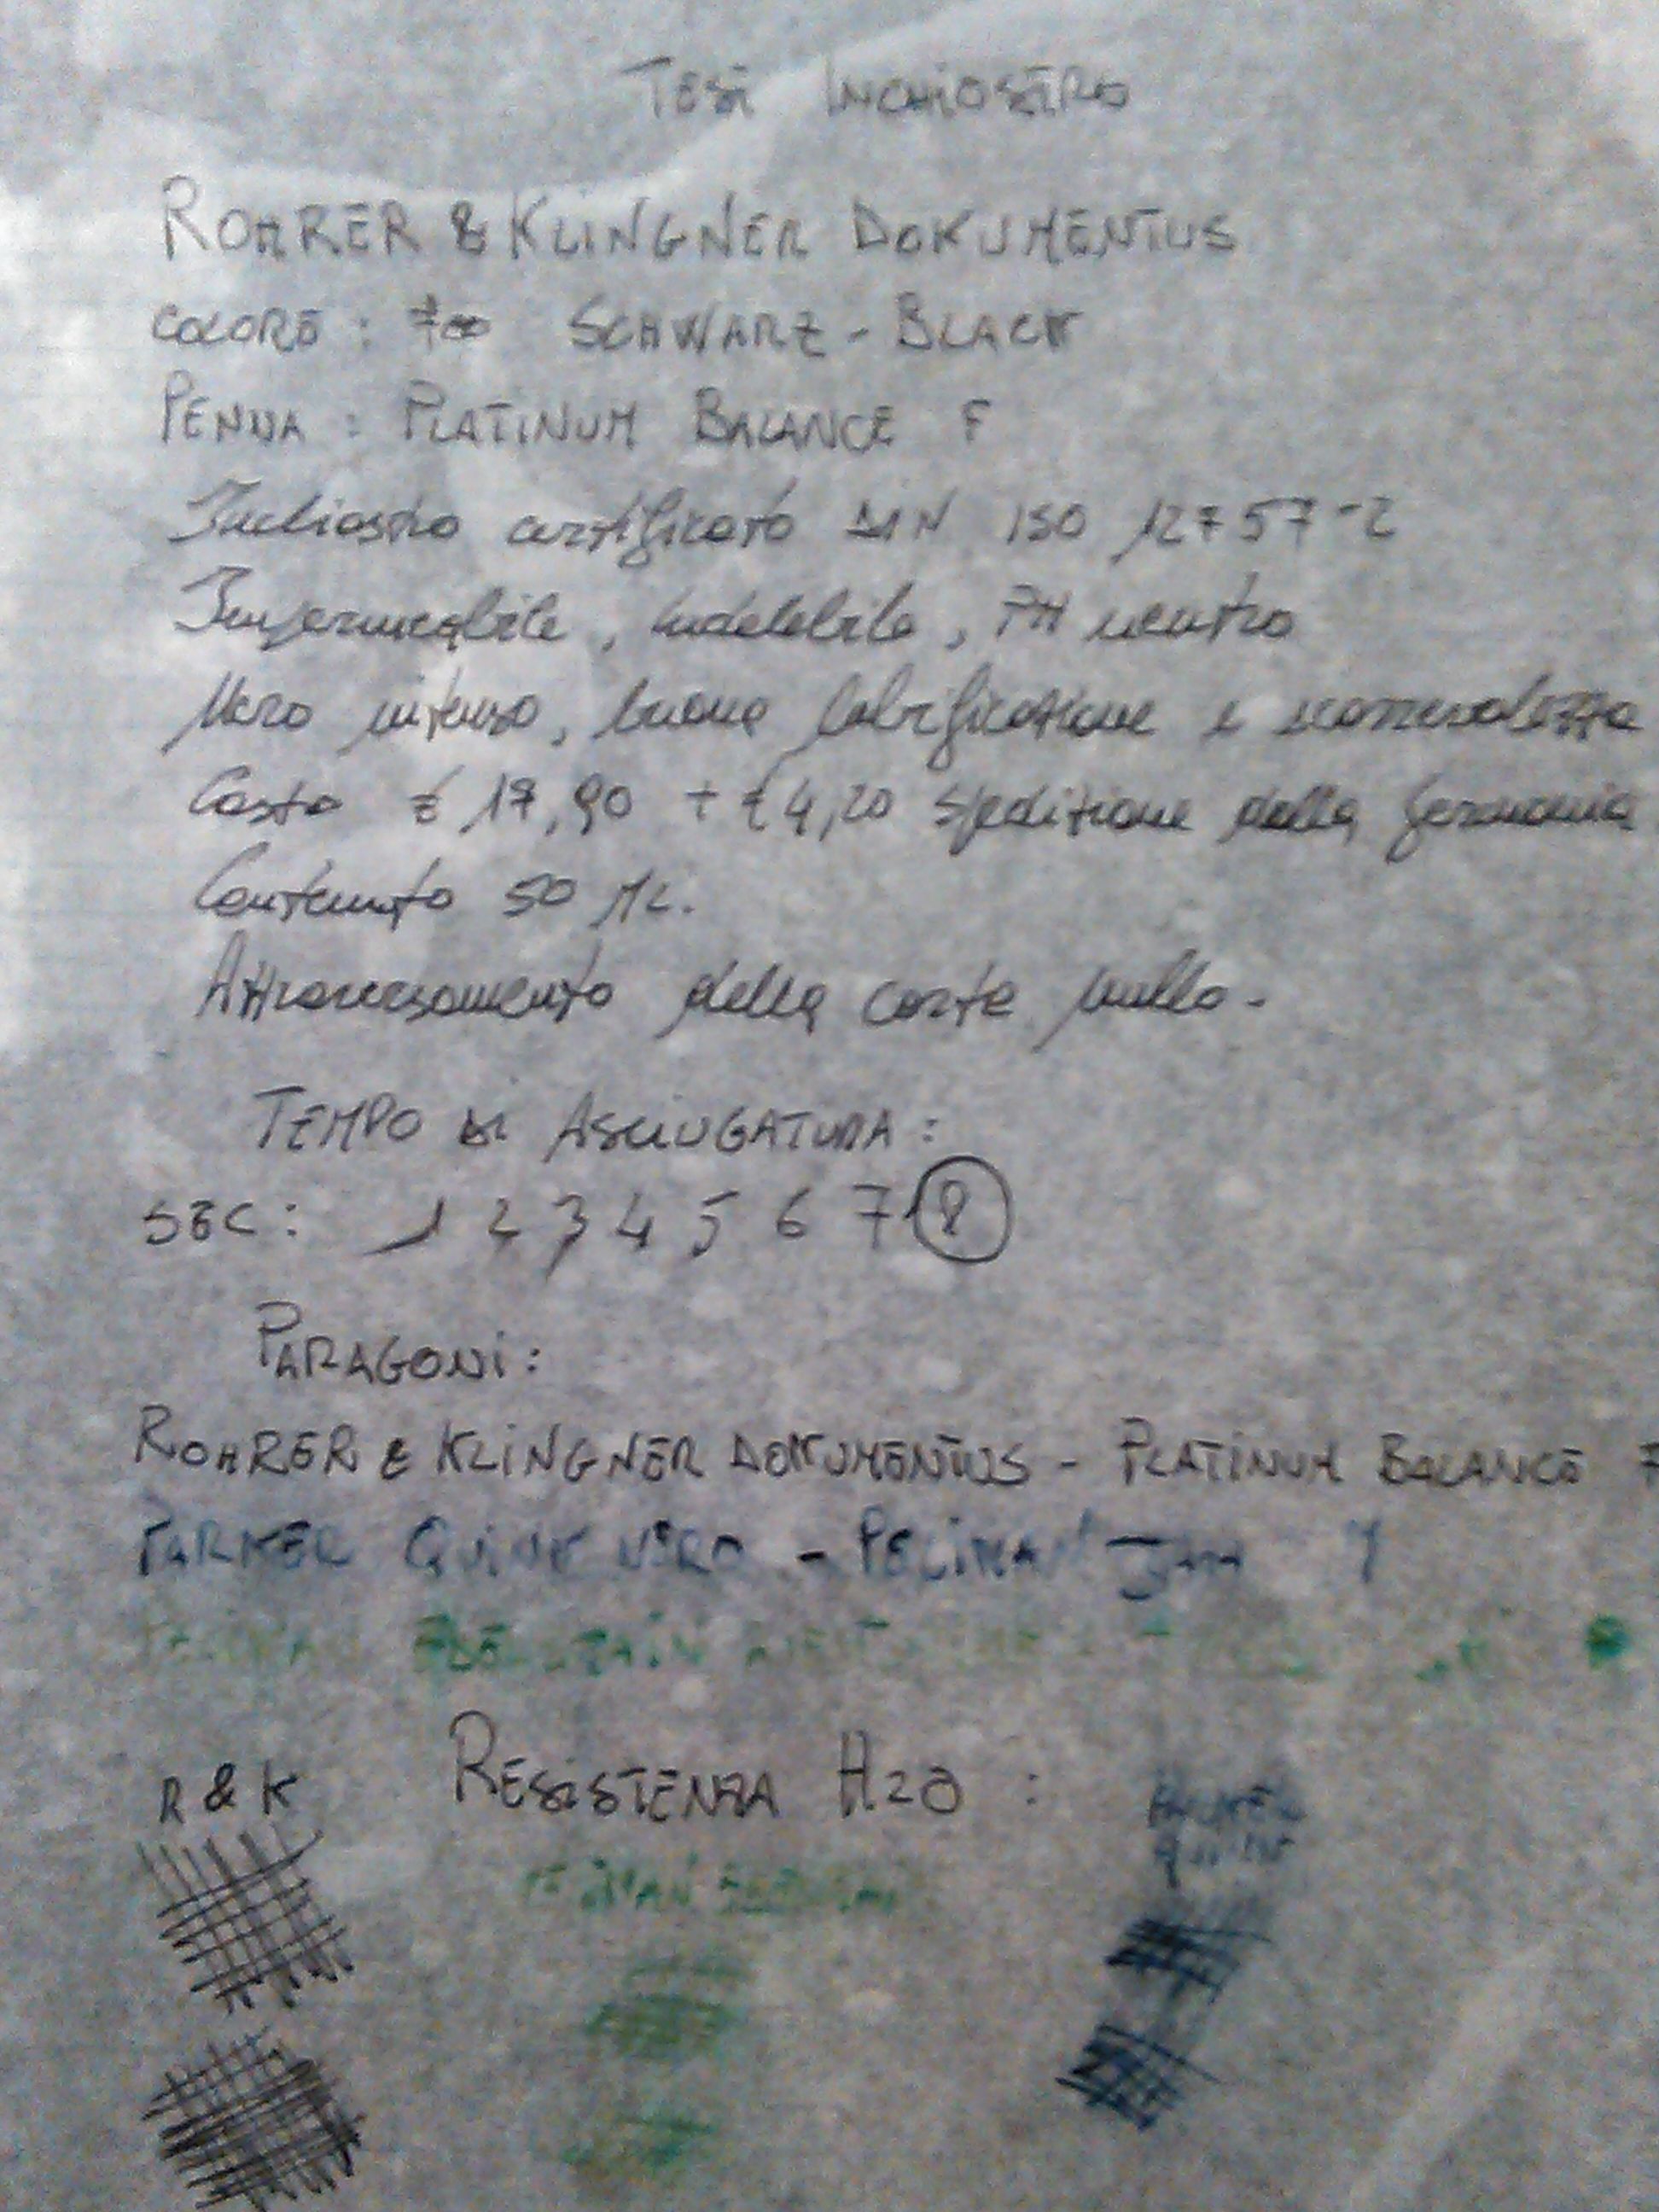 TEST INCHIOSTRO
ROHRER & KLINGNER DOKUMENTUS
COLORE : 700 SCHWARZ - BLACK
PENNA : PLATINUM BALANCE F
Inchiostro certificato DIN ISO 12757-2
Impermeabile, indelebile, PH neutro
Nero intenso, buona lubrificazione e scorrevolezza
Costo € 17,90 + € 4,20 spedizione dalla Germania
Contenuto 50 ML.
Attraversamento della carta nullo -
TEMPO DI ASCIUGATURA :
SEC : 1 2 3 4 5 6 7 8
PARAGONI :
ROHRER & KLINGNER DOKUMENTUS - PLATINUM BALANCE F
PARKER QUINK NERO - PELIKAN
PELIKAN EDELSTEIN AVENTURINE -
R & K RESISTENZA H2O : PARKER
QUINK
PELIKAN